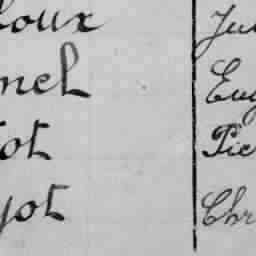 oux Ju
nel Eug
ot Pie
yot Chr